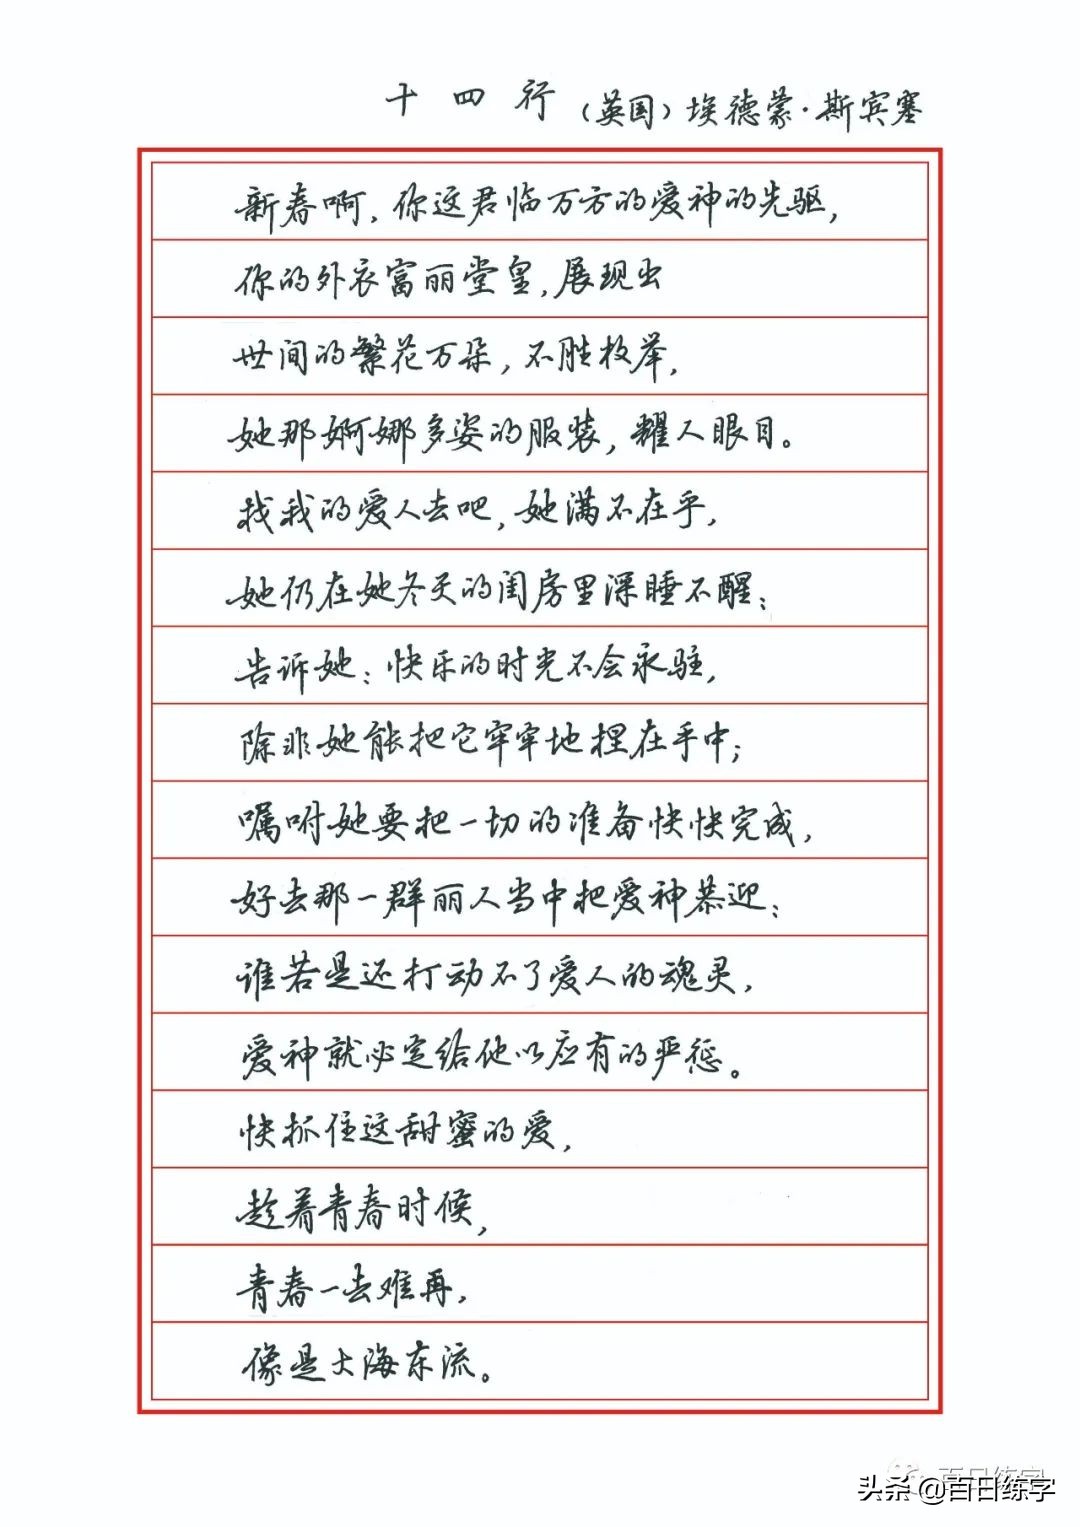 十四行（英国）埃德蒙·斯宾塞
新春啊，你这君临万方的爱神的先驱，
你的外衣富丽堂皇，展现出
世间的繁花万朵，不胜枚举，
她那婀娜多姿的服装，耀人眼目。
找我的爱人去吧，她满不在乎，
她仍在她冬天的闺房里深睡不醒；
告诉她：快乐的时光不会永驻，
除非她能把它牢牢地捏在手中；
嘱咐她要把一切的准备快快完成，
好去那一群丽人当中把爱神恭迎；
谁若是还打动不了爱人的魂灵，
爱神就必定给他以应有的严惩。
快抓住这甜蜜的爱，
趁着青春时候，
青春一去难再，
像是大海东流。
百日练字
头条@百日练字